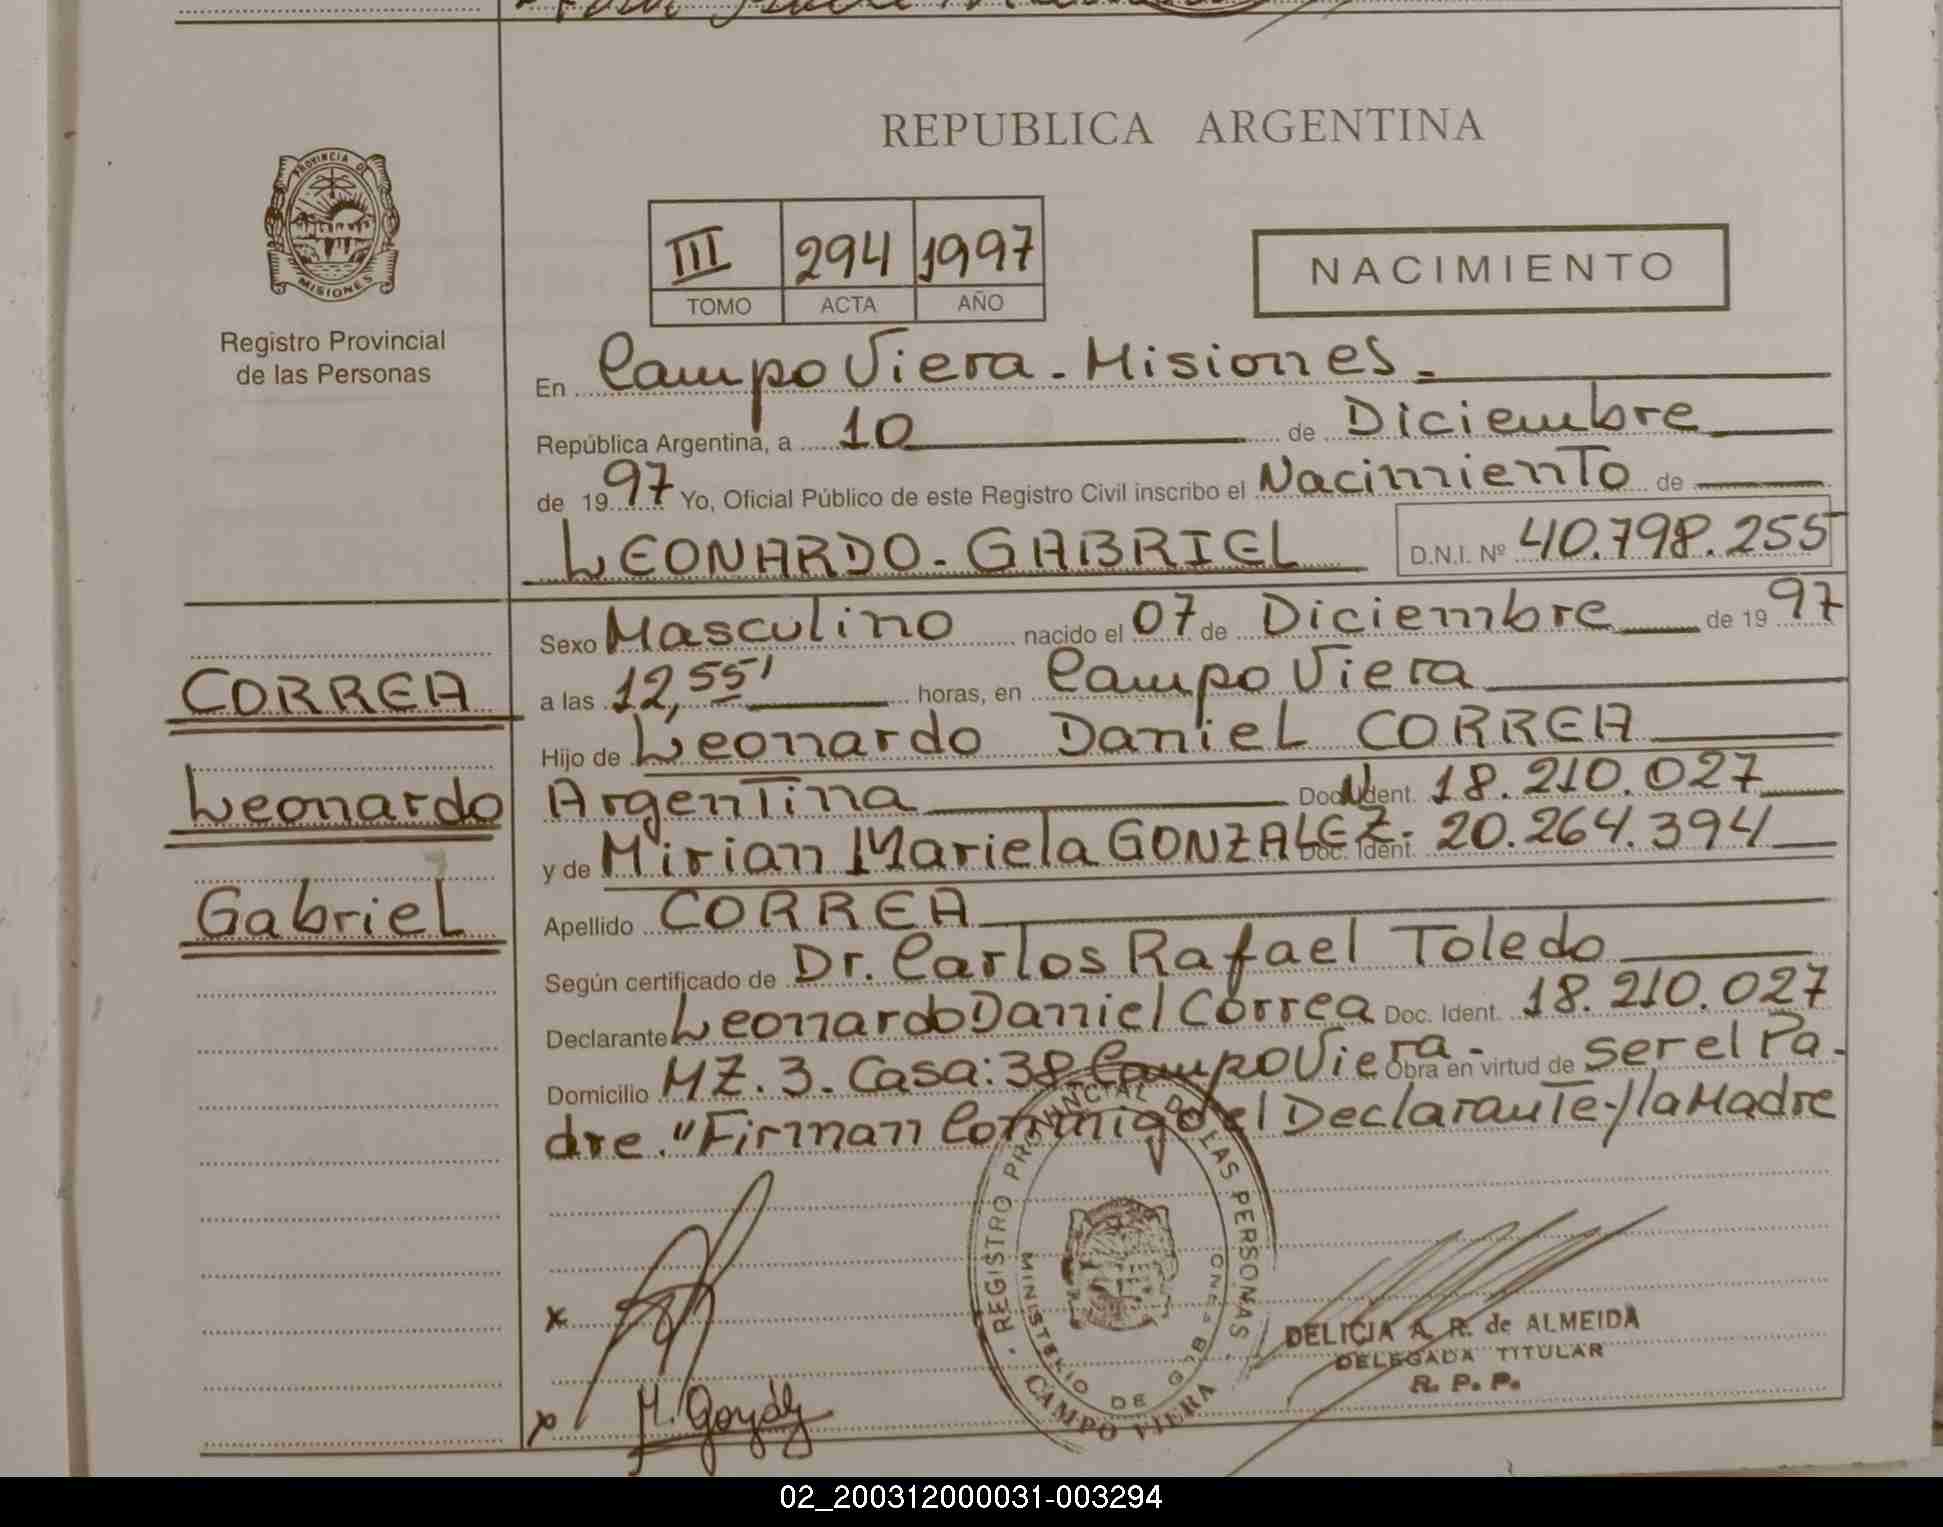 REPUBLICA ARGENTINA
PROVINCIA DE
MISIONES
Registro Provincial
de las Personas
III 294 1997
TOMO ACTA AÑO
NACIMIENTO
En Campo Viera - Misiones.-
República Argentina, a 10 de Diciembre
de 1997 Yo, Oficial Público de este Registro Civil inscribo el Nacimiento de
LEONARDO - GABRIEL D.N.I. Nº 40.798.255
CORREA
Leonardo
Gabriel
Sexo Masculino nacido el 07 de Diciembre de 1997
a las 12,55' horas, en Campo Viera
Hijo de Leonardo Daniel CORREA
Argentina Doc. N Ident. 18.210.027
y de Mirian Mariela GONZALEZ. Doc. Ident. 20.264.394
Apellido CORREA
Según certificado de Dr. Carlos Rafael Toledo
Declarante Leonardo Daniel Correa Doc. Ident. 18.210.027
Domicilio MZ. 3. Casa: 38 Campo Viera - Obra en virtud de ser el Pa-
dre. "Firman Conmigo el Declarante y la Madre
REGISTRO PROVINCIAL DE LAS PERSONAS
MINISTERIO DE
CAMPO VIERA
x
x
DELICIA A. R. de ALMEIDA
DELEGADA TITULAR
R. P. P.
02_200312000031-003294